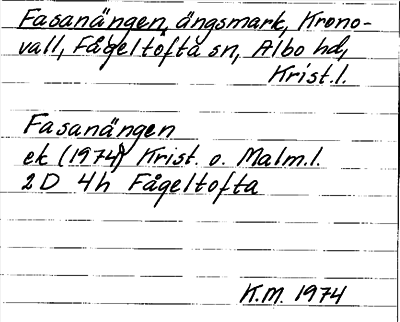 Fasanängen, ängsmark, Krono-
vall, Fågeltofta sn, Albo hd,
Krist.l.
Fasanängen
ek (1974) Krist. o. Malm.l.
2D 4h Fågeltofta
K.M. 1974